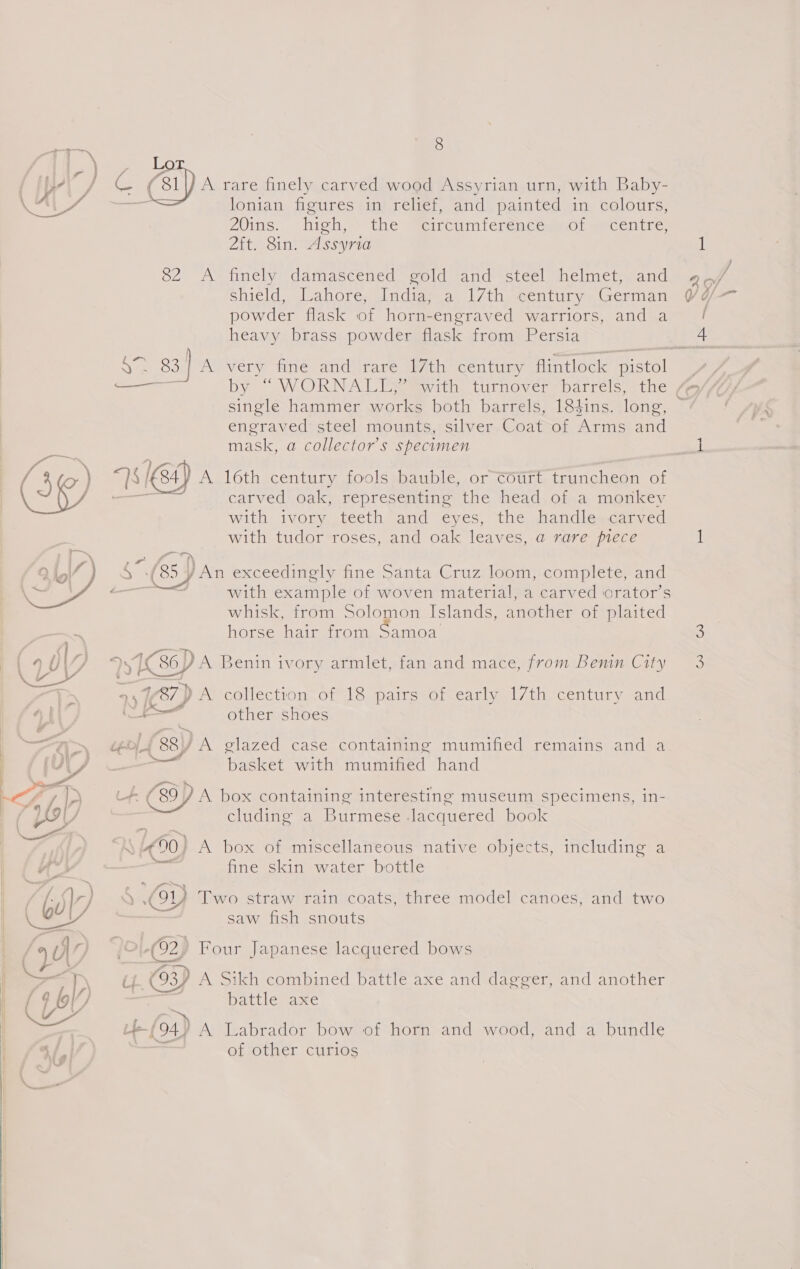 8
Lot
81 A rare finely carved wood Assyrian urn, with Baby-
lonian figures in relief, and painted in colours,
20ins. high, the circumference of centre,
2ft. 8in. Assyria 1
82 A finely damascened gold and steel helmet, and
shield, Lahore, India, a 17th century German
powder flask of horn-engraved warriors, and a
heavy brass powder flask from Persia 4
83 A very fine and rare 17th century flintlock pistol
by “WORNALL,” with turnover barrels, the
single hammer works both barrels, 18½ins. long,
engraved steel mounts, silver Coat of Arms and
mask, a collector's specimen 1
84 A 16th century fools bauble, or court truncheon of
carved oak, representing the head of a monkey
with ivory teeth and eyes, the handle carved
with tudor roses, and oak leaves, a rare piece 1
85 An exceedingly fine Santa Cruz loom, complete, and
with example of woven material, a carved orator's
whisk, from Solomon Islands, another of plaited
horse hair from Samoa 3
86 A Benin ivory armlet, fan and mace, from Benin City 3
87 A collection of 18 pairs of early 17th century and
other shoes
88 A glazed case containing mumified remains and a
basket with mumified hand
89 A box containing interesting museum specimens, in-
cluding a Burmese lacquered book
90 A box of miscellaneous native objects, including a
fine skin water bottle
91 Two straw rain coats, three model canoes, and two
saw fish snouts
92 Four Japanese lacquered bows
93 A Sikh combined battle axe and dagger, and another
battle axe
94 A Labrador bow of horn and wood, and a bundle
of other curios